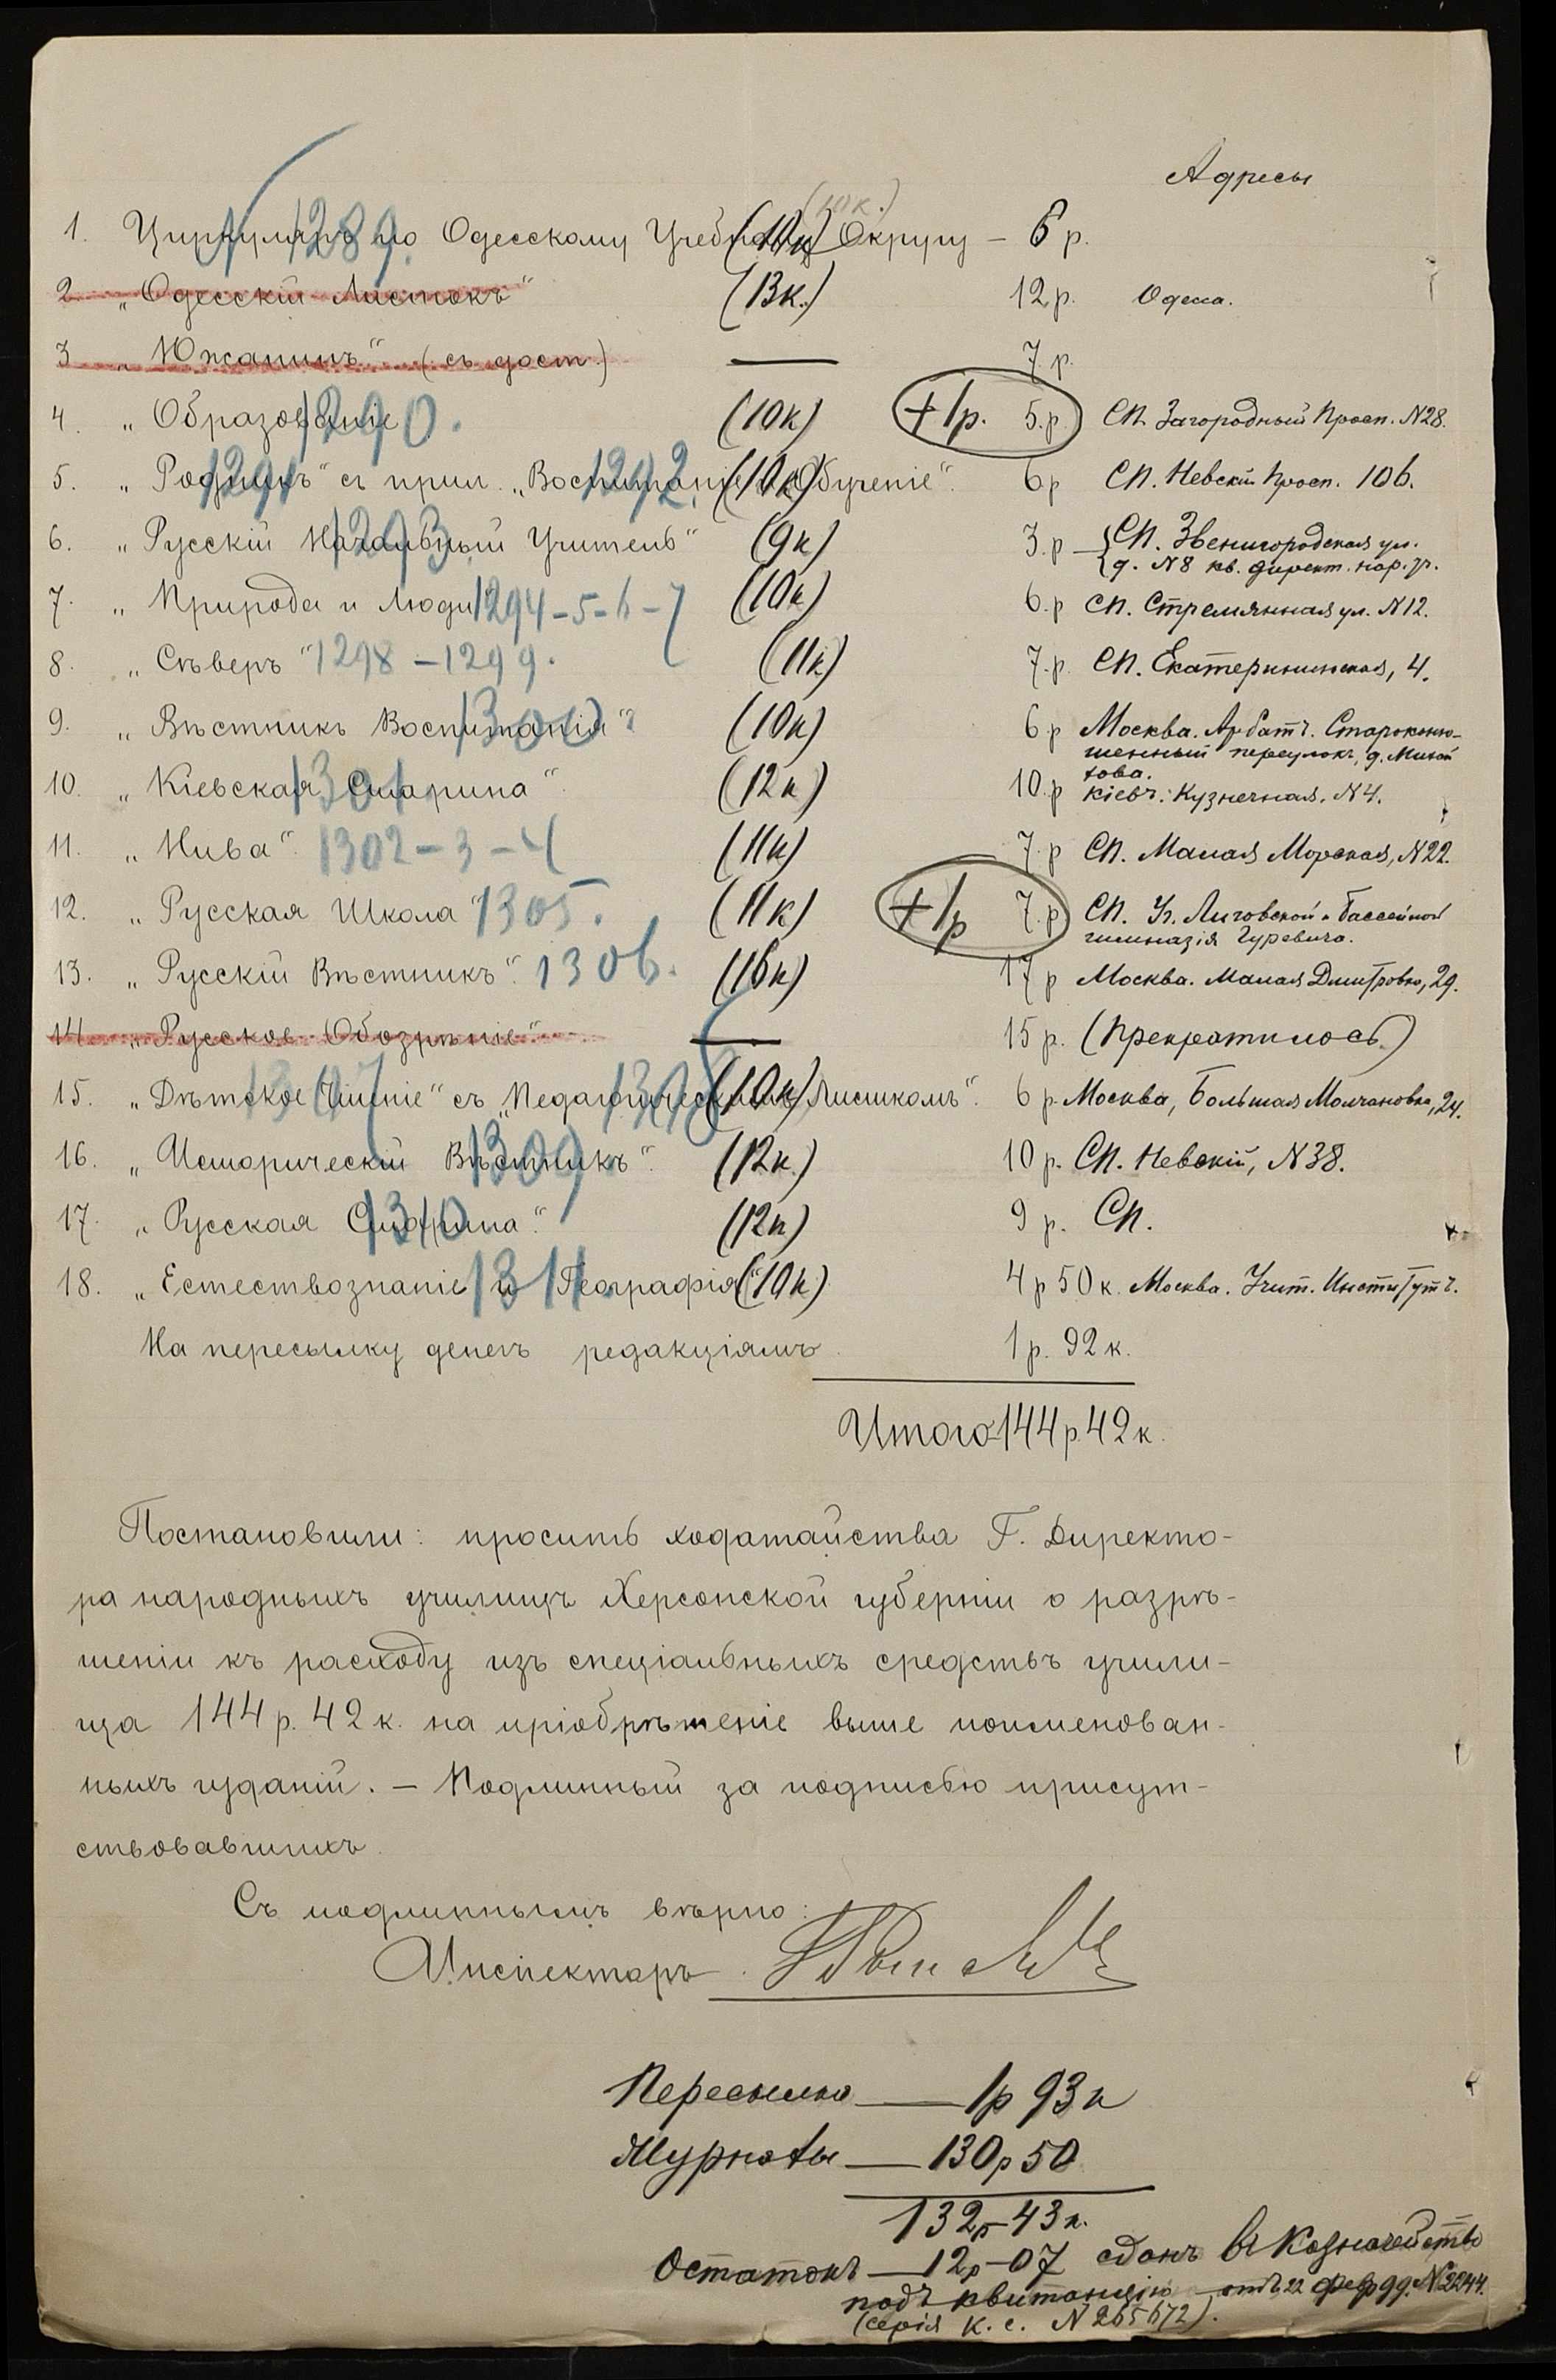 Адресы
(10к.)
1. Циркуляръ по Одесскому Учебному Округу — 6 р.
N 1289.
2. „Одесскій Листокъ“ (13к.) 12 р. Одесса.
3 „Южанинъ“ (съ дост.) — 7 р.
4. „Образованіе 1290. (10к) +1р. 5.р. СП. Загородный Просп. N28.
5. „Родникъ“ съ прил. „Воспитаніе и Обученіе“. (10к) 6 р СП. Невскій Просп. 106.
1291 1292.
6. „Русскій Начальный Учитель“ 1293 (9к) 3.р — СП. Звенигородская ул.
д. N8 кв. директ. нар. уч.
7. „Природа и Люди“ 1294-5-6-7 (10к) 6.р СП. Стремянная ул. N12.
8. „Сѣверъ“ 1298-1299. (11к) 7.р. СП. Екатерининская, 4.
9. „Вѣстникъ Воспитанія“ 1300 (10к) 6 р Москва. Арбатъ. Староконю-
шенный переулокъ, д. Михай
лова.
10. „Кіевская Старина“ 1301 (12к) 10.р Кіевъ. Кузнечная. N4.
11. „Нива“ 1302-3-4 (11к) 7.р СП. Малая Морская, N22.
12. „Русская Школа“ 1305. (11к) +1р 7.р СП. Уг. Лиговской и Бассейной
гимназія Гуревича.
13. „Русскій Вѣстникъ“. 1306. (16к) 17 р Москва. Малая Дмитровка, 29.
14 „Русское Обозрѣніе“ — 15 р. (Прекратилось.)
15. „Дѣтское Чтеніе“ съ „Педагогическимъ Листкомъ“. (10к) 6 р. Москва, Большая Молчановка, 24.
1307 1308
16. „Историческій Вѣстникъ“. 1309 (12к.) 10 р. СП. Невскій, N38.
17. „Русская Старина“. 1310 (12к) 9 р. СП.
18. „Естествознаніе и Географія“ 1311. (10к) 4 р 50 к. Москва. Учит. Институтъ.
На пересылку денегъ редакціямъ 1 р. 92 к.
Итого 144 р 42 к.
Постановили: просить ходатайства Г. Директо-
ра народныхъ училищъ Херсонской губерніи о разрѣ-
шеніи къ расходу изъ спеціальныхъ средствъ учили-
ща 144 р. 42 к. на пріобрѣтеніе выше поименован-
ныхъ изданій. — Подлинный за подписью присут-
ствовавшихъ.
Съ подлиннымъ вѣрно:
Инспекторъ
Пересылка — 1р 93к
Журналы — 130р 50
132р-43к.
Остатокъ — 12р-07 сданъ въ Казначейство
подъ квитанцію отъ 22 февр 99. N2244.
(серія К. с. N 265672).